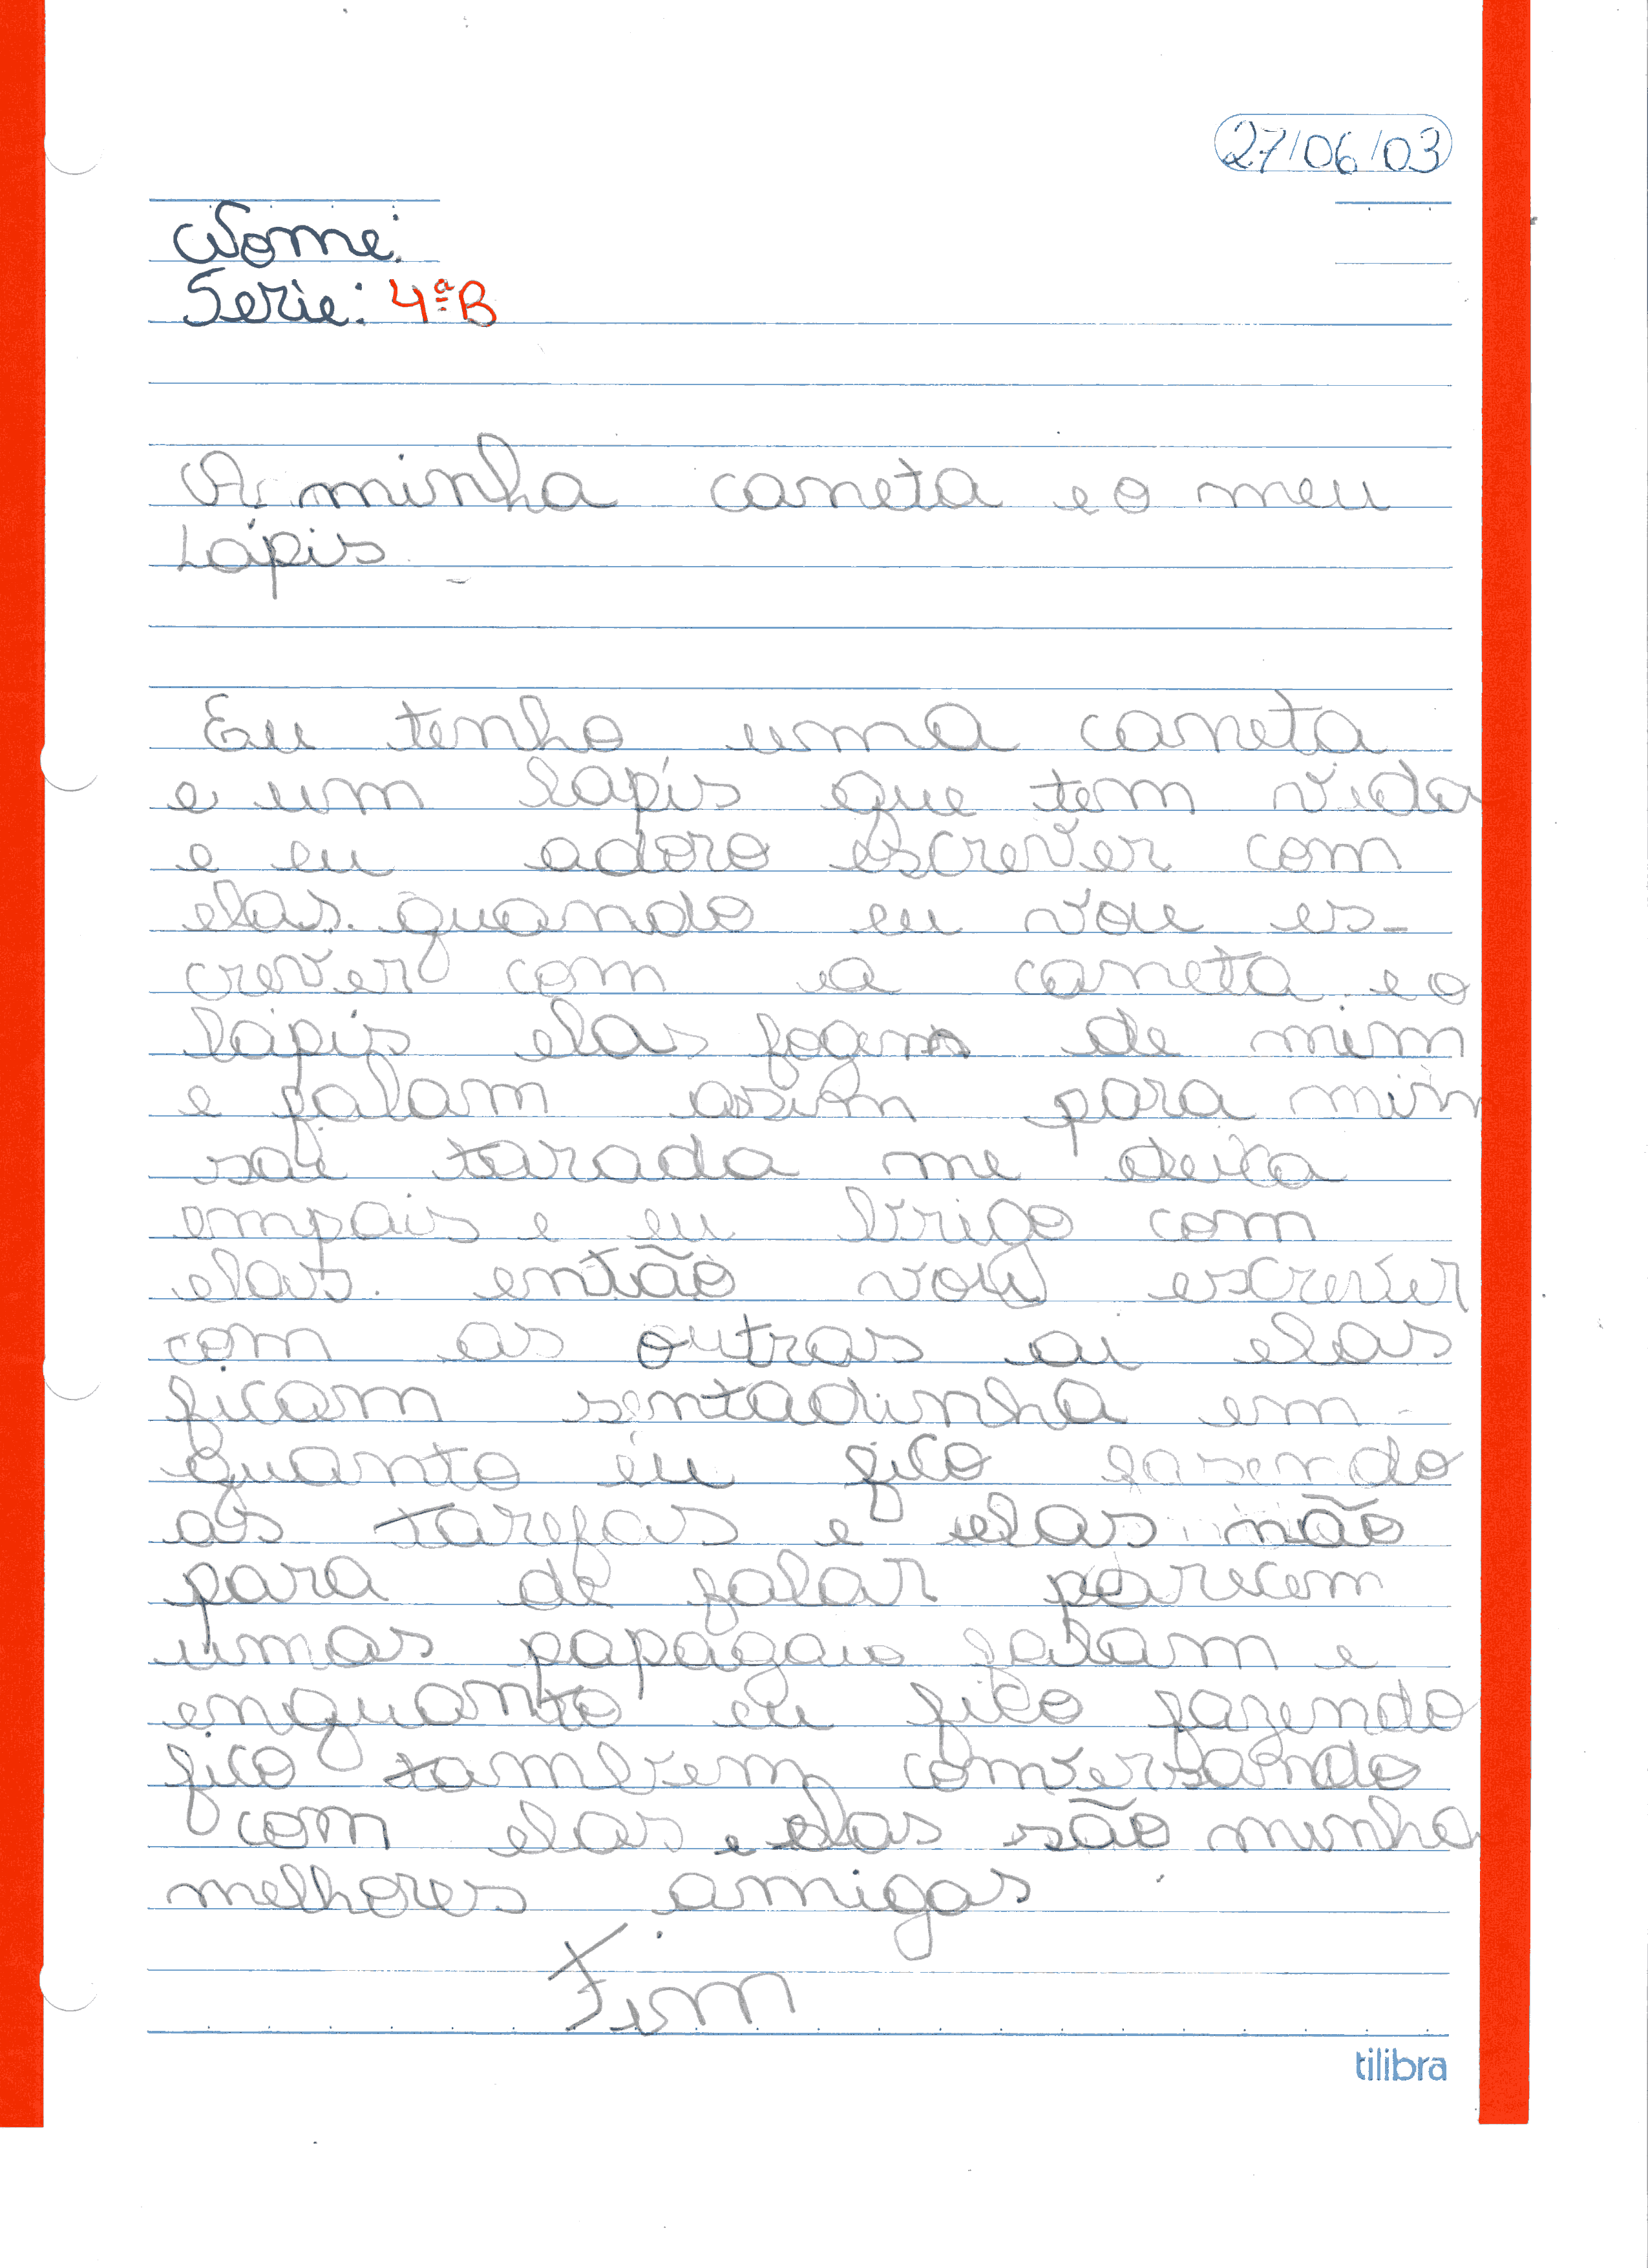 27/06/03
Nome:
Serie: 4ª B
A minha caneta e o meu
Lápis
Eu tenho uma caneta
e um lapis que tem vida
e eu adoro escrever com
elas. quando eu vou es-
crever com a caneta e o
lápis elas fogem de mim
e falam assim para mim
sai tarada me deica
empais e eu brigo com
elas. então vou escrever
com as outras ai elas
ficam sentadinha em-
quanto eu fico fasendo
as tarefas e elas não
para de falar parecem
umas papagaio falam e
enquanto eu fico fazendo
fico tambem conversando
com elas e elas são minha
melhores amigas
Fim
tilibra